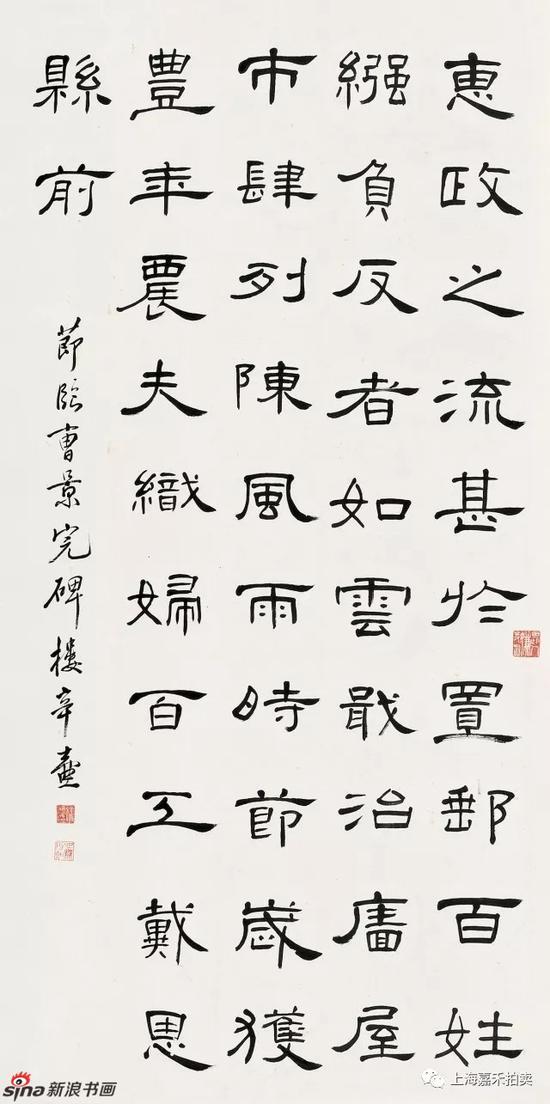 惠政之流甚於置郵百姓
繦負反者如雲戢治廧屋
市肆列陳風雨時節歲獲
豐年農夫織婦百工戴恩
縣前
節臨曹景完碑樓辛壺
sina新浪书画
上海嘉禾拍卖